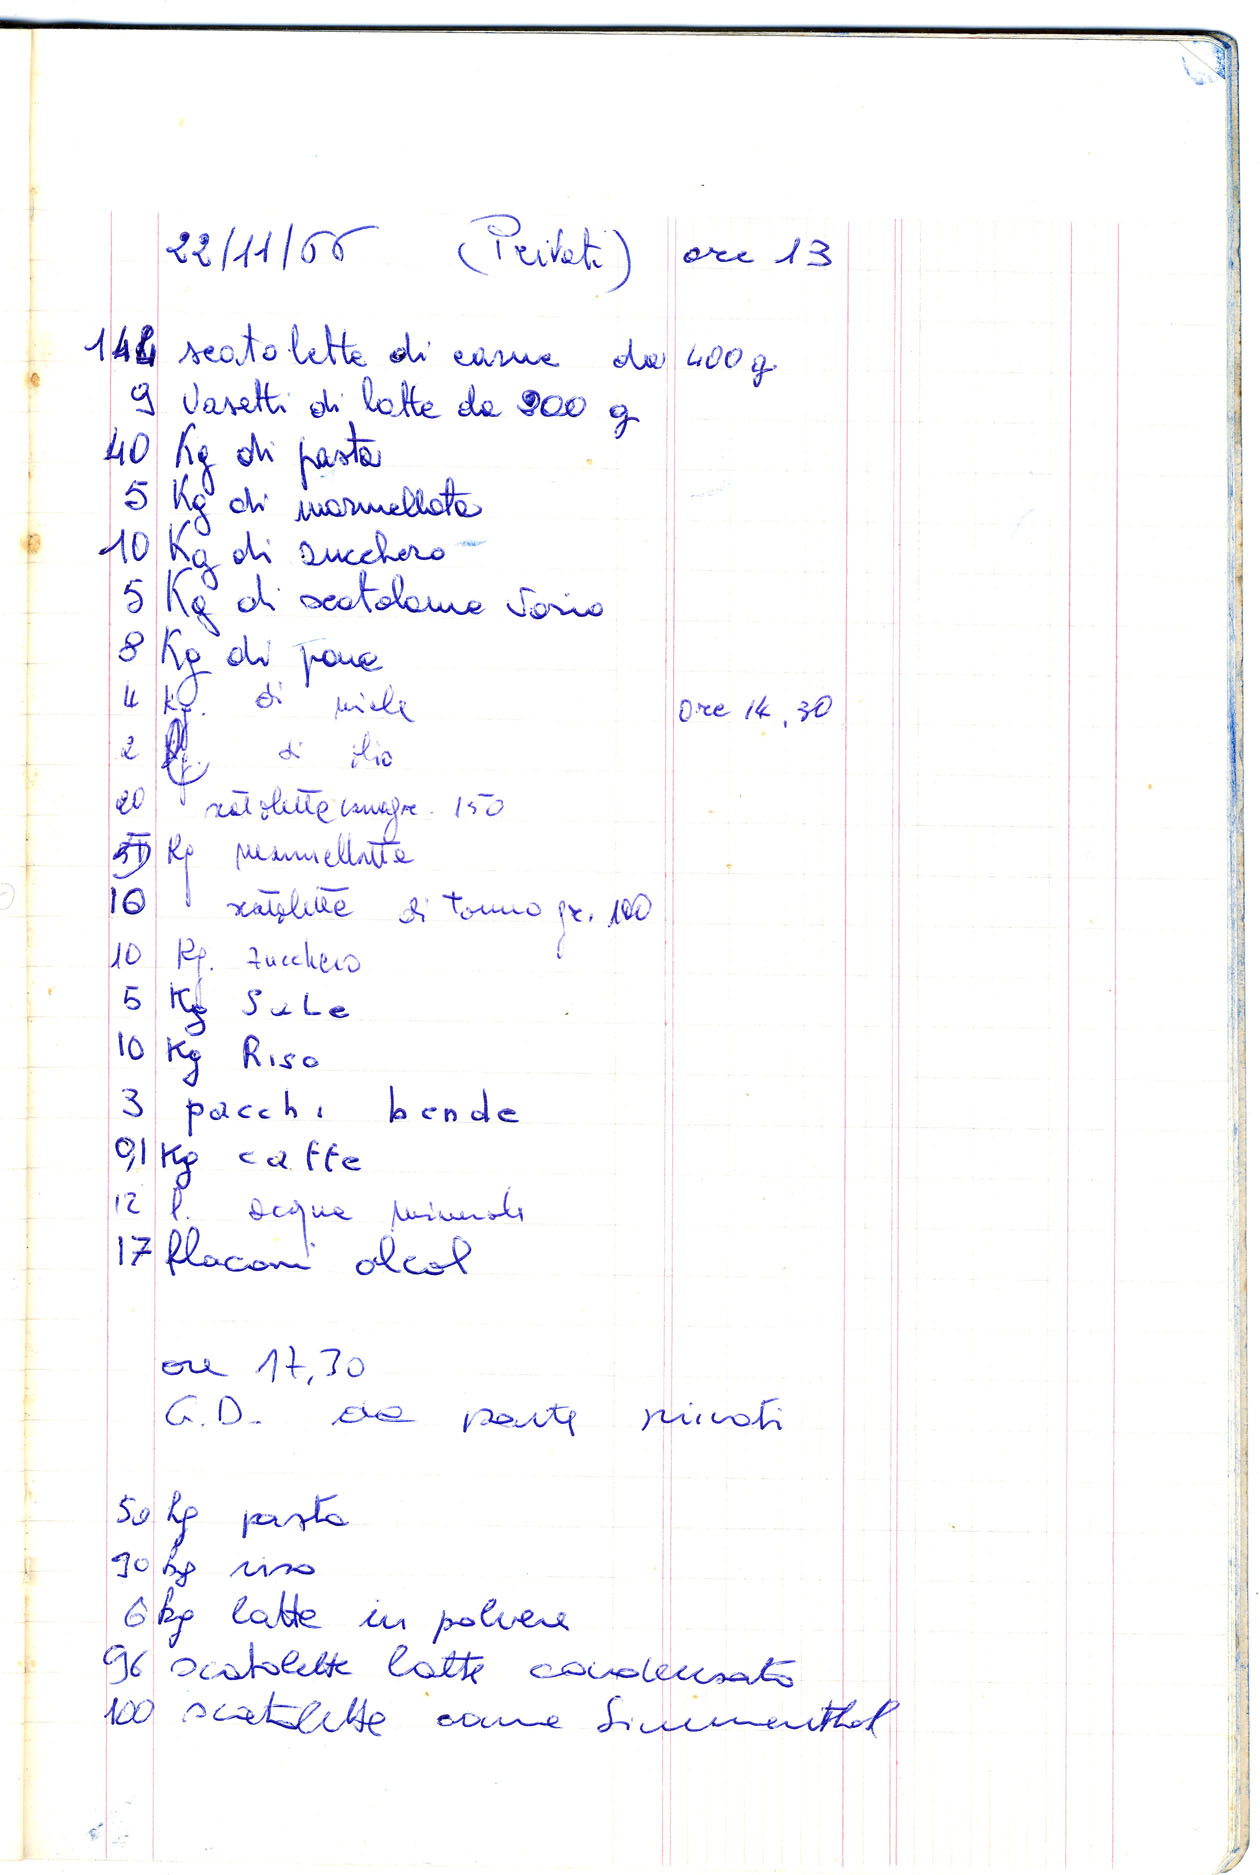 22/11/66 (Privati) ore 13
144 scatolette di carne da 400 g.
9 Vasetti di latte da 200 g
40 Kg di pasta
5 Kg di marmellata
10 Kg di zucchero
5 Kg di scatolame vario
8 Kg di pane
4 Kg. di miele ore 14,30
2 di olio
20 scatolette carne gr. 150
Kg marmellatta
10 scatolette di tonno gr. 100
10 Kg. zucchero
5 Kg SaLe
10 Kg Riso
3 pacchi bende
0,1 Kg caffe
12 l. acqua minerale
17 flaconi alcol
ore 17,30
G.D. da parte privati
50 kg pasta
30 kg riso
6 kg latte in polvere
96 scatolette latte condensato
100 scatolette carne Simmenthal